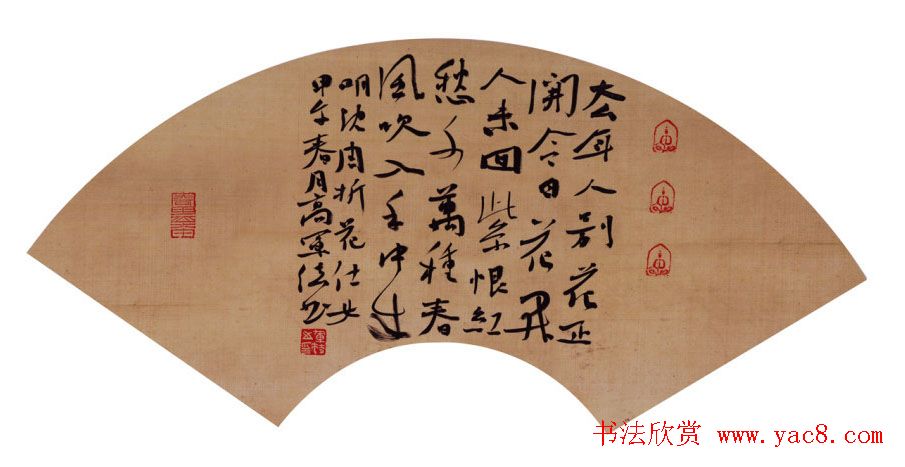 去年人别花正
開今日花开
人未回紫恨紅
愁千萬種春
風吹入手中来
明沈周折花仕女
甲午春月高軍书
书法欣赏 www.yac8.com